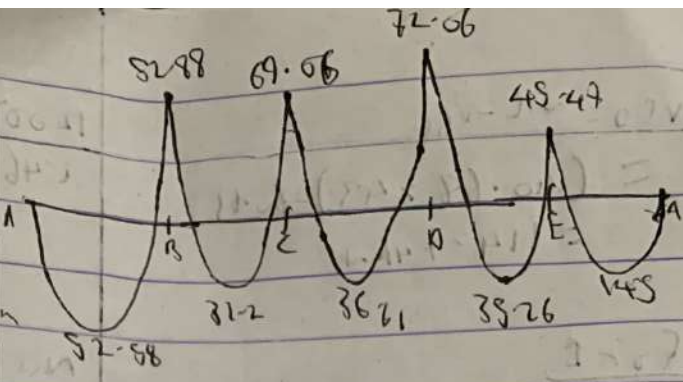 72.06
52.88 69.06 45.47
A B C D E A
52.88 31.2 36.21 35.26 14.5